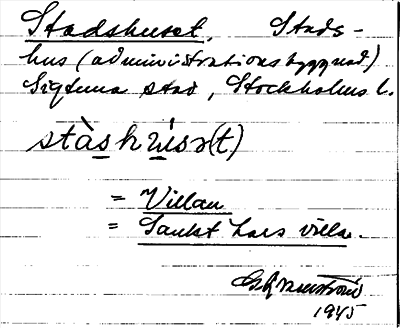 Stadshuset, Stads-
hus (administrationsbyggnad)
Sigtuna stad, Stockholms l.
stàshu̇́sə(t)
= Villan
= Sankt Lars villa.
1945